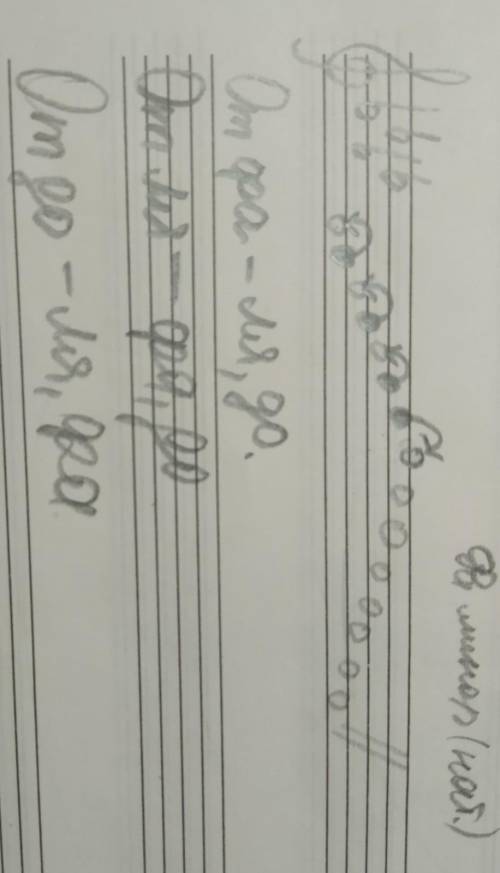 фа минор (нат.)
От фа - ля, до.
От ля - фа, до
От до - ля, фа